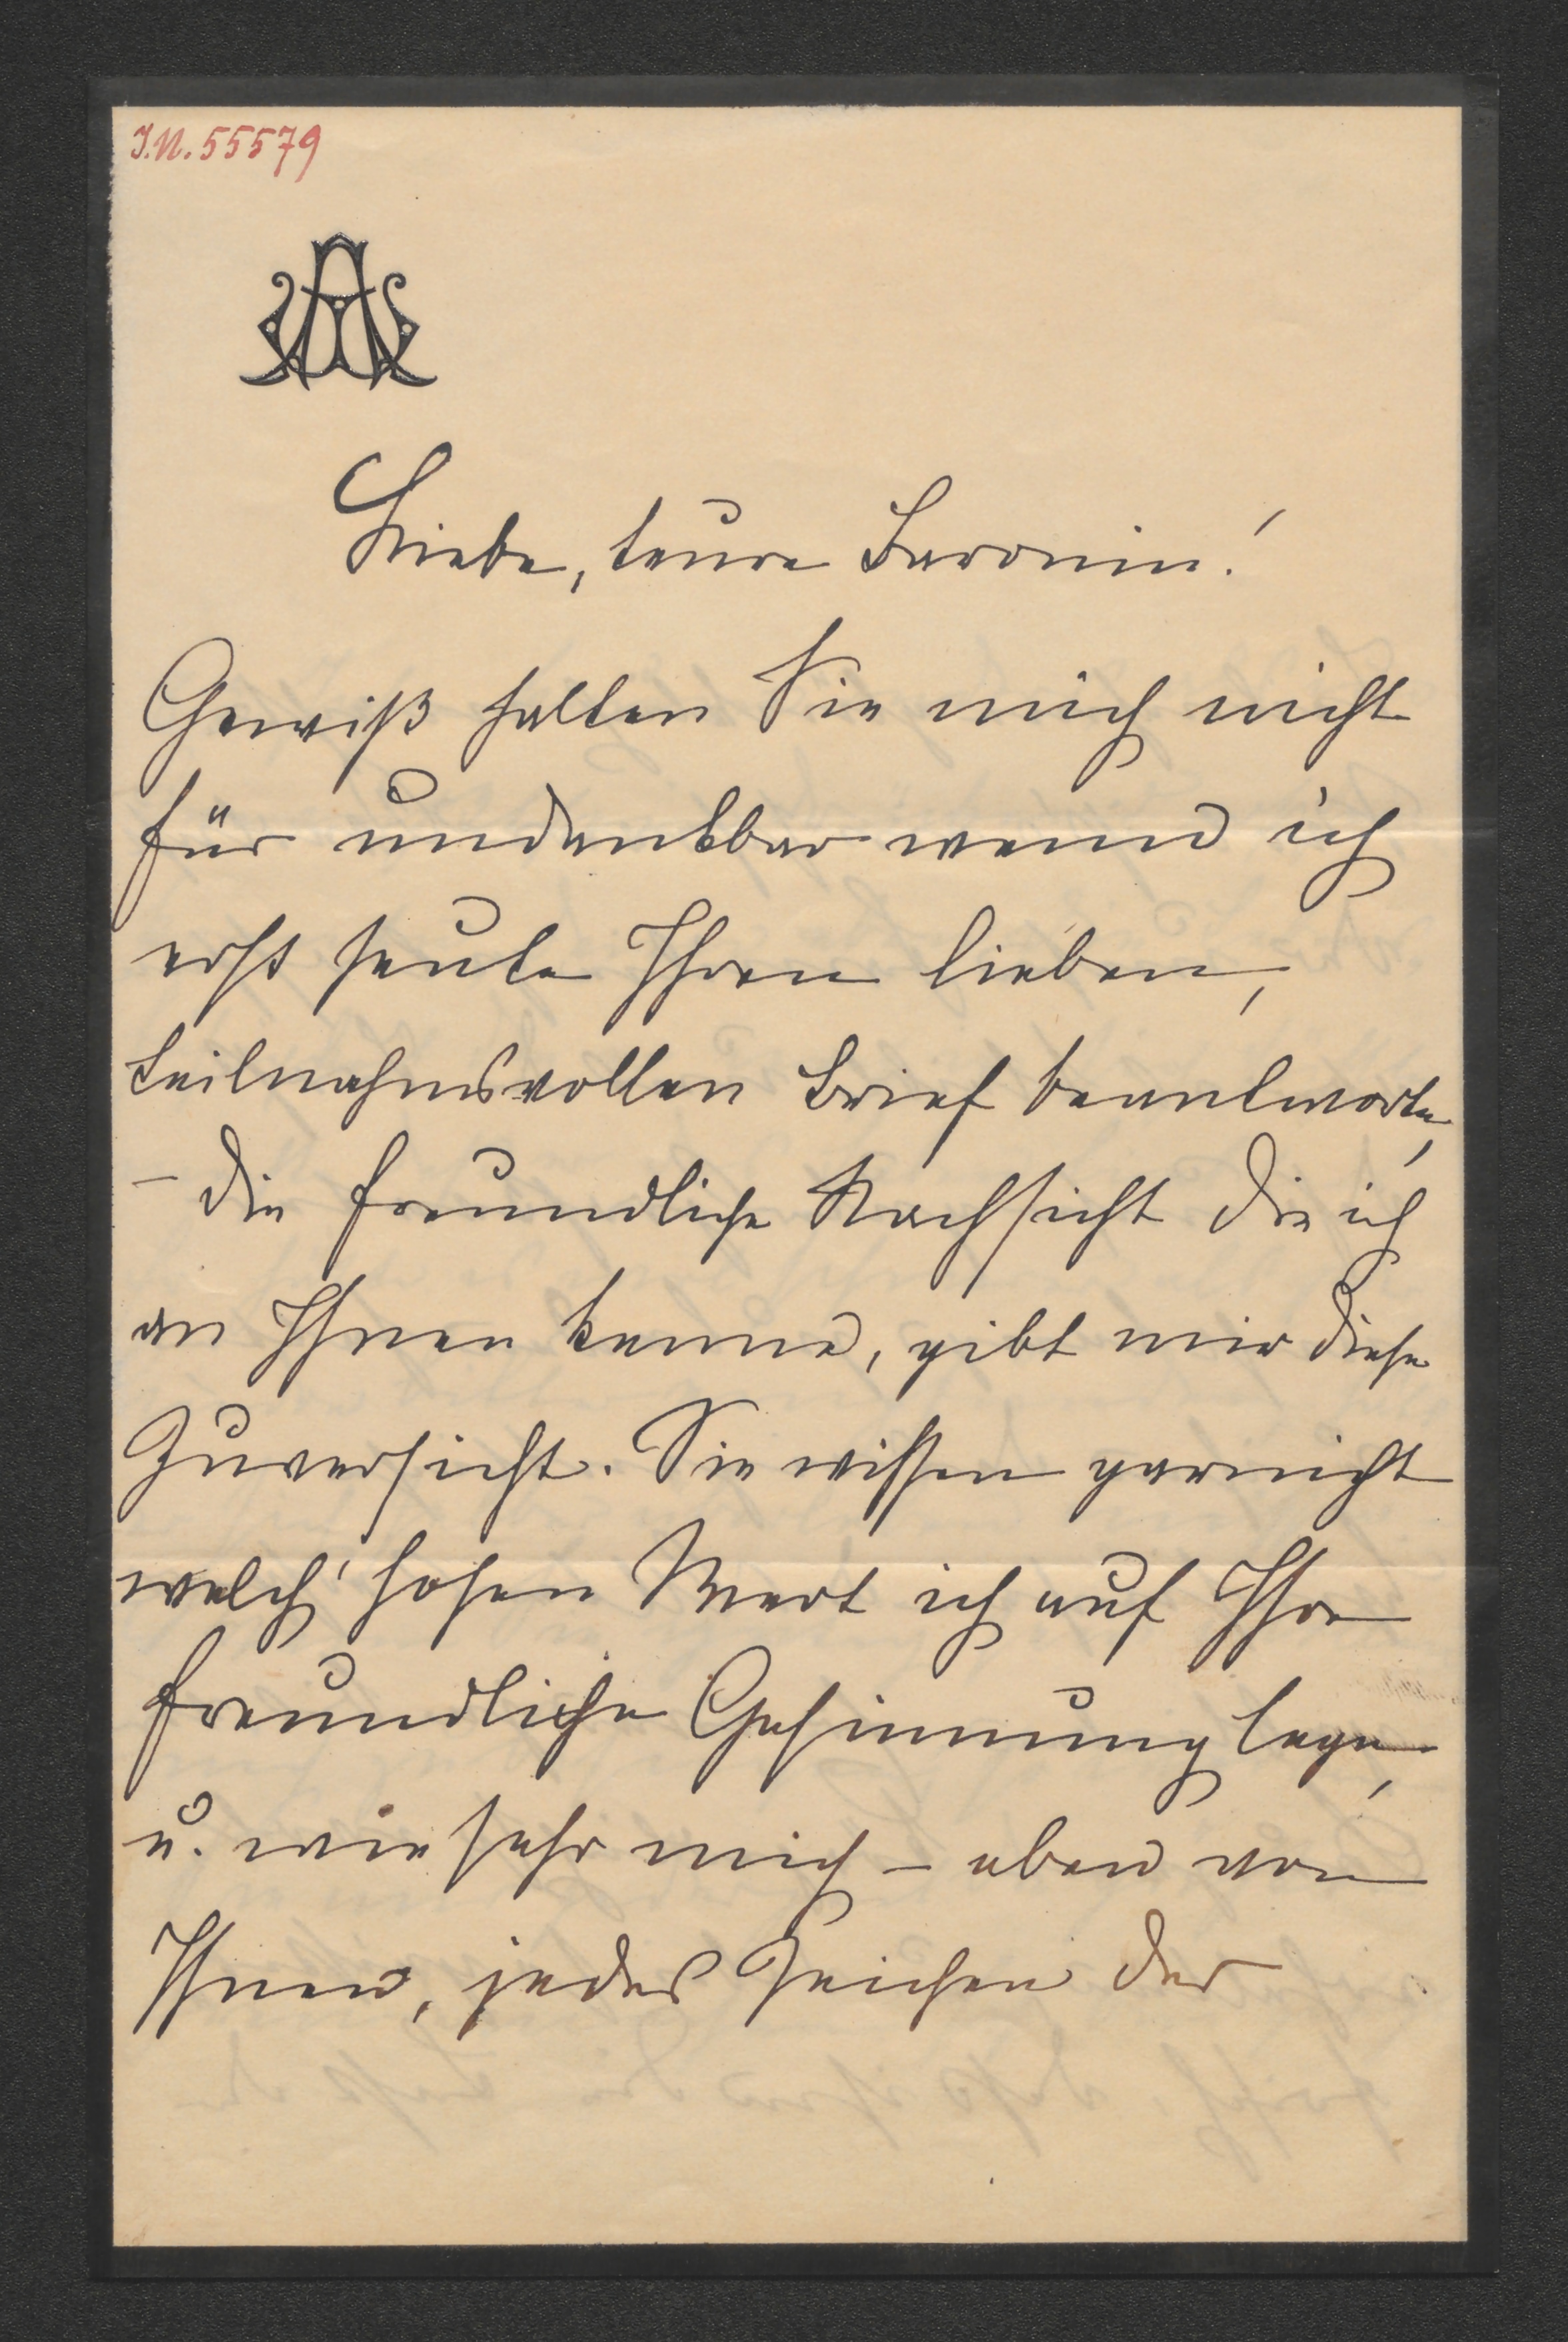 I.N. 55579
Liebe, teure Baronin!
Gewiß halten Sie mich nicht
für undankbar wenn ich
erst heute Ihren lieben,
teilnahmsvollen Brief beantworte,
– die freundliche Nachsicht die ich
an Ihnen kenne, gibt mir diese
Zuversicht. Sie wissen garnicht
welch' hohen Wert ich auf Ihre
freundliche Gesinnung lege,
u. wie sehr mich – eben von
Ihnen, jedes Zeichen der